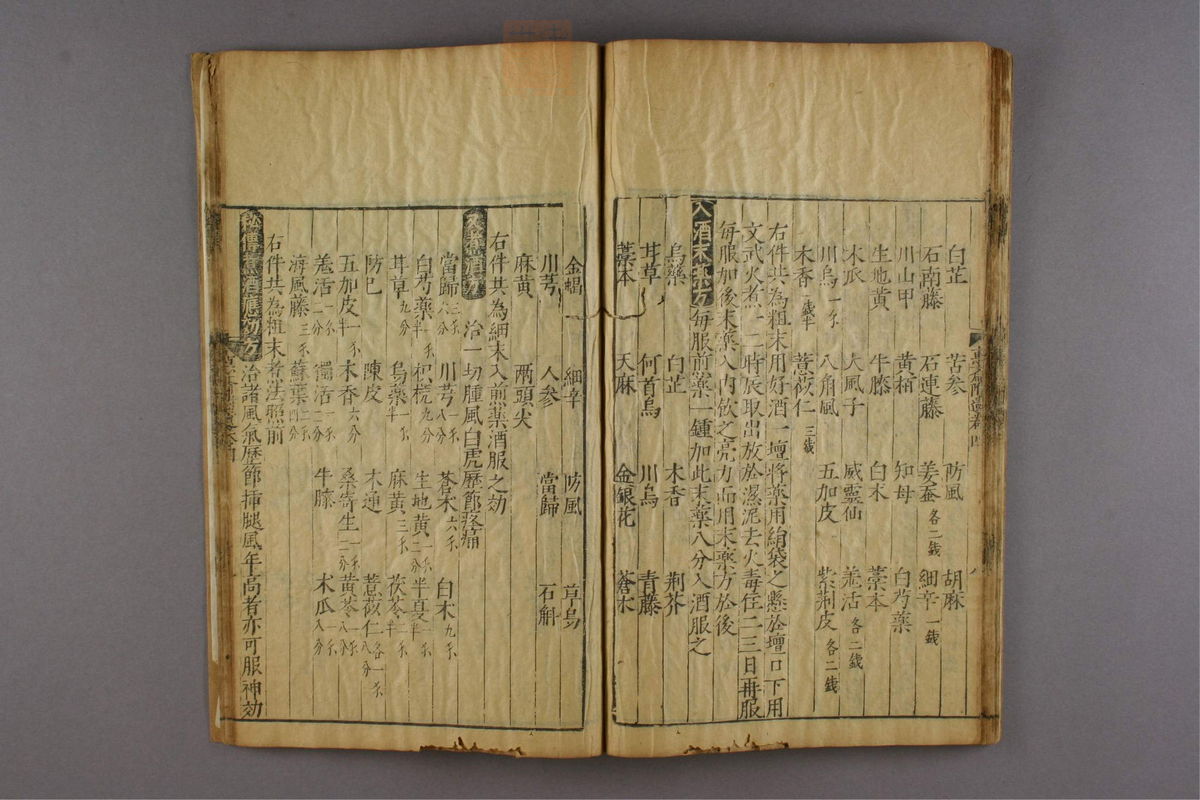 白芷 苦參 防風 胡麻
石南藤 石連藤 姜蚕各二錢 細辛一錢
川山甲 黃栢 知母 白芍藥
生地黃 牛膝 白朮 藁本
木瓜 大風子 威靈仙 羌活各二錢
川烏一个 八角風 五加皮 紫荆皮各二錢
木香一錢半 薏苡仁三錢
右件共為粗末用好酒一壇將藥用絹袋之懸於壇口下用
文武火煮一二時辰取出放於濕泥去火毒在二三日再服
每服加後末藥入内飲之亮力而用末藥方於後
入酒末藥方每服前藥一鍾加此末藥八分入酒服之
烏藥 白芷 木香 荆芥
甘草 何首烏 川烏 青藤
藁本 天麻 金銀花 蒼朮
金蝎 細辛 防風 草烏
川芎 人參 當歸 石斛
麻黃 兩頭尖
右件共為細末入前藥酒服之効
又煮酒方 治一切腫風白虎歷節疼痛
當歸 川芎 蒼朮 白朮
白芍藥 枳梡 生地黃 半夏
甘草九分 烏藥 麻黃 茯苓
防巳 陳皮 木通 薏苡仁
五加皮 木香六分 桑寄生 黃芩
羌活 獨活 牛膝 木瓜
海風藤 蘇葉
右件共為粗末煮法照前
治諸風氣歷節挿腿風年高者亦可服神効